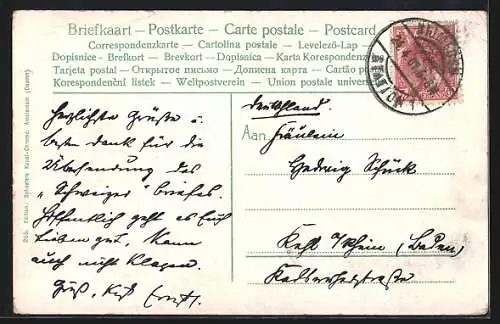 Briefkaart – Postkarte – Carte postale – Postcard
Correspondenzkarte – Cartolina postale – Levelező-Lap
Dopisnice – Brefkort – Brevkort – Dapisnica – Karta Korespondenc
Tarjeta postal – Открытое письмо – Дописна карта – Cartão po
Korespondenční listek – Weltpostverein – Union postale univer
Deutschland.
Herzlichste Grüsse u.
besten Dank für die
Übersendung des
"Schweizer" briefes.
Hoffentlich geht es Euch
lieben gut, kann
auch nicht klagen.
Gruß, Kuß Ernst.
Aan Fräulein
Hedwig Schück
Kehl a/Rhein (Baden)